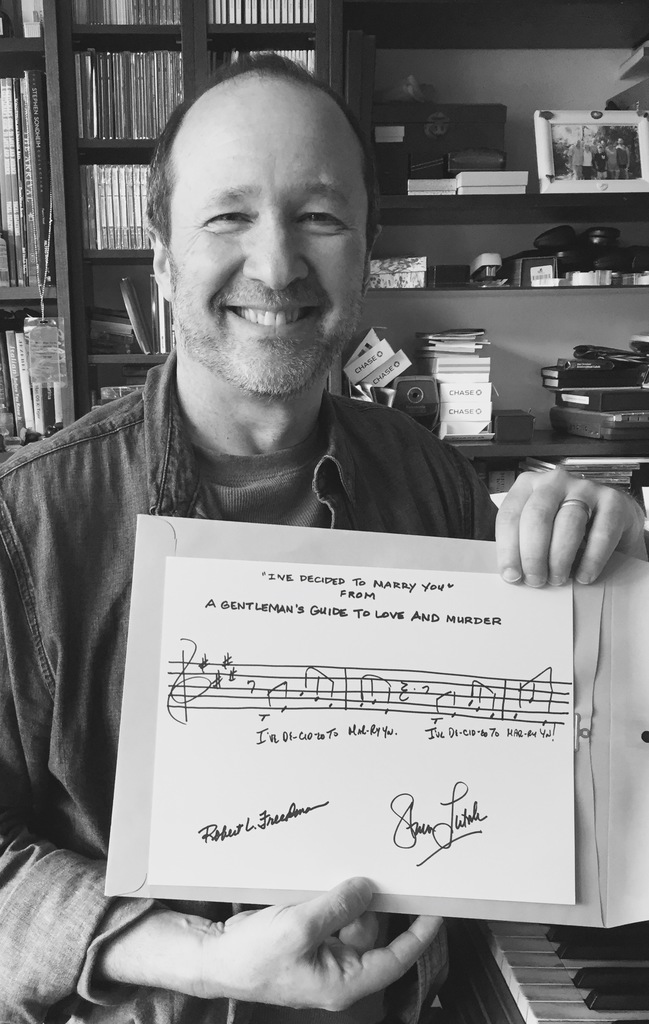 STEPHEN SONDHEIM
CHASE
CHASE
CHASE
CHASE
"I'VE DECIDED TO MARRY YOU"
FROM
A GENTLEMAN'S GUIDE TO LOVE AND MURDER
I'VE DE-CID-ED TO MAR-RY YOU. I'VE DE-CID-ED TO MAR-RY YOU!
Robert L. Freedman